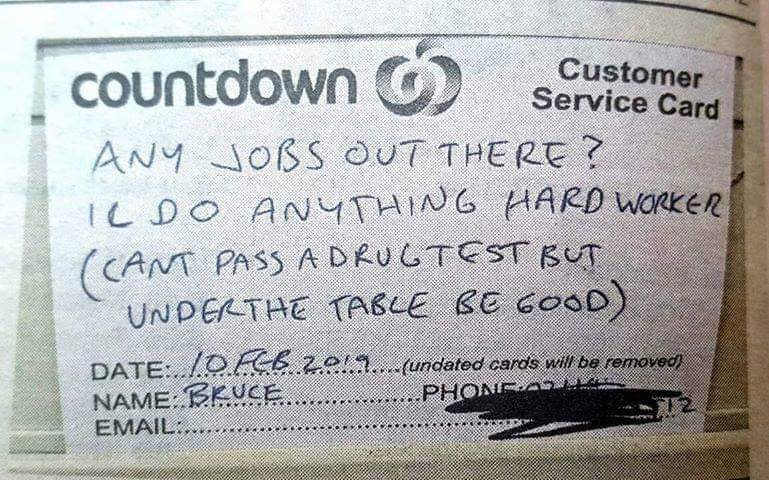 countdown
Customer
Service Card
ANY JOBS OUT THERE?
IL DO ANYTHING HARD WORKER
(CANT PASS A DRUG TEST BUT
UNDER THE TABLE BE GOOD)
DATE:..10 FEB 2019....(undated cards will be removed)
NAME:.BRUCE....................PHONE:
EMAIL:.......................................... 12